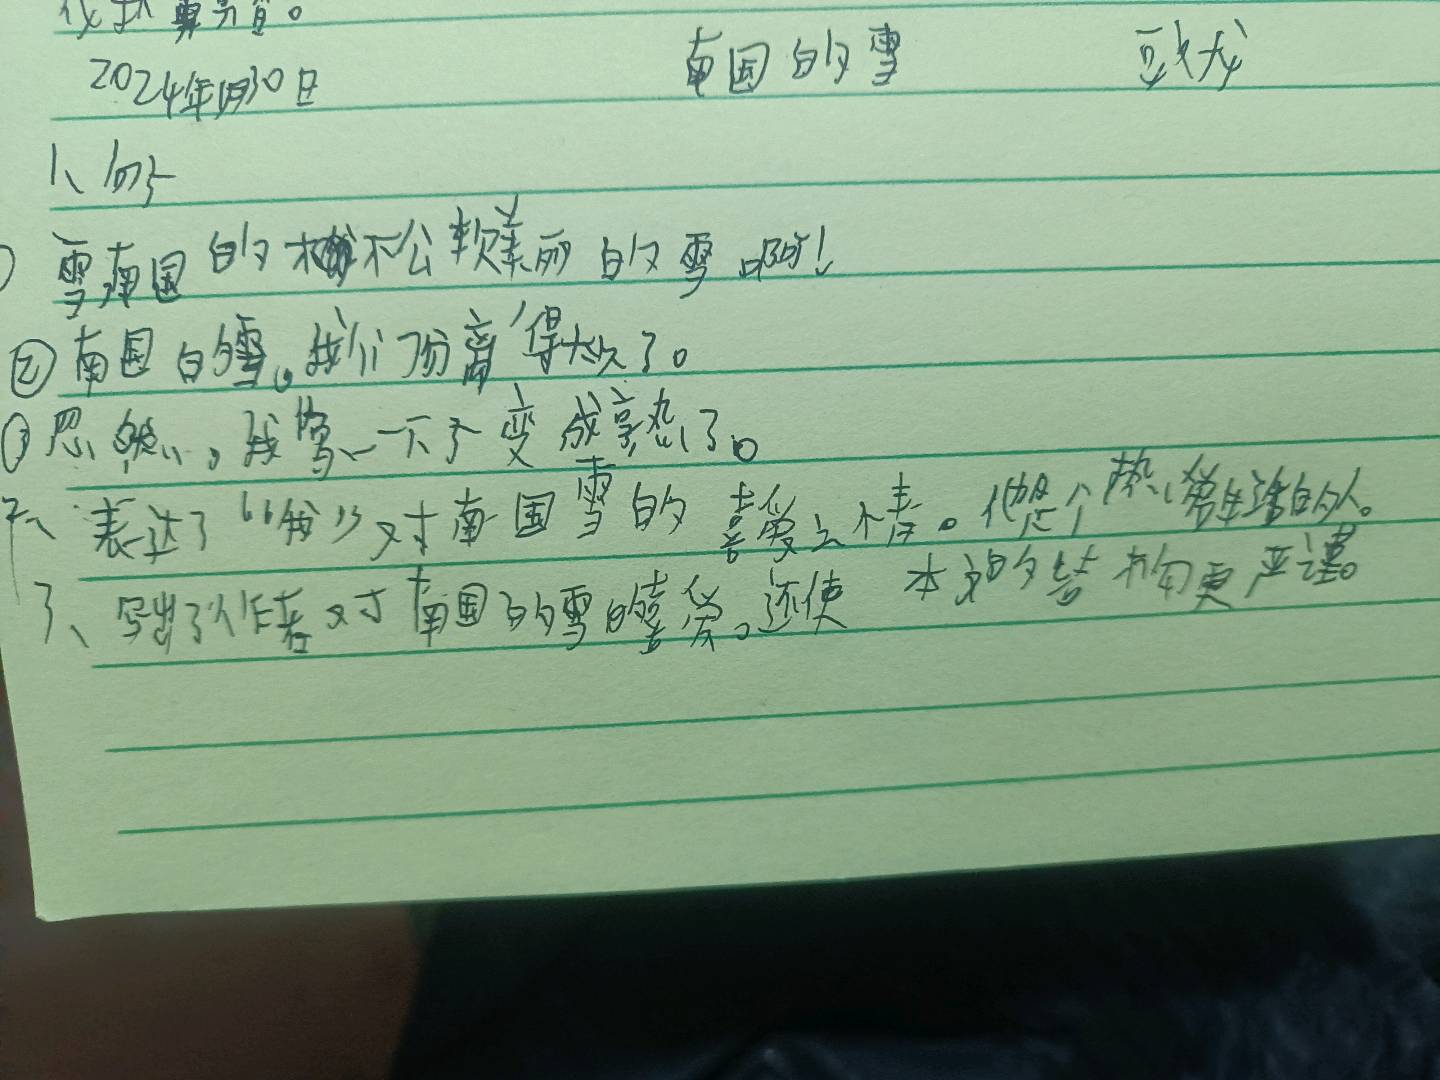 2024年1月30日 南国的雪
1、
南国的 松软美丽的雪啊!
②南国的雪。我们分离得太久了。
③忽然，我 一下子变成熟了。
表达了“我”对南国雪的喜爱之情。他是个热爱生活的人。
3、写出了作者对南国的雪的喜爱。还使本文的结构更严谨。